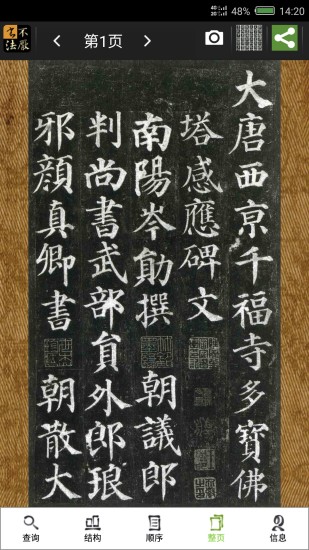 48% 14:20
不厳
书法
第1页
大唐西京千福寺多寳佛
塔感應碑文
南陽岑勛撰 朝議郎
判尚書武部貟外郎琅
邪顔真卿書 朝散大
查询 结构 顺序 整页 信息